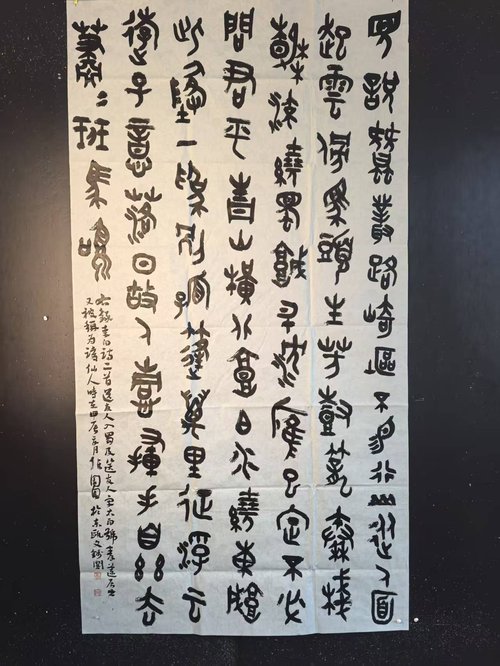 見說蠶叢路崎嶇不易行山從人面
起雲傍馬頭生芳樹籠秦棧
春流繞蜀城升沉應已定不必
問君平青山橫北郭白水繞東城
此地一為別孤蓬萬里征浮雲
游子意落日故人情揮手自茲去
蕭〻班馬鳴
右錄李白詩二首送友人入蜀及送友人字太白號青蓮居士
又被稱為詩仙人時在甲辰月於東甌文閣